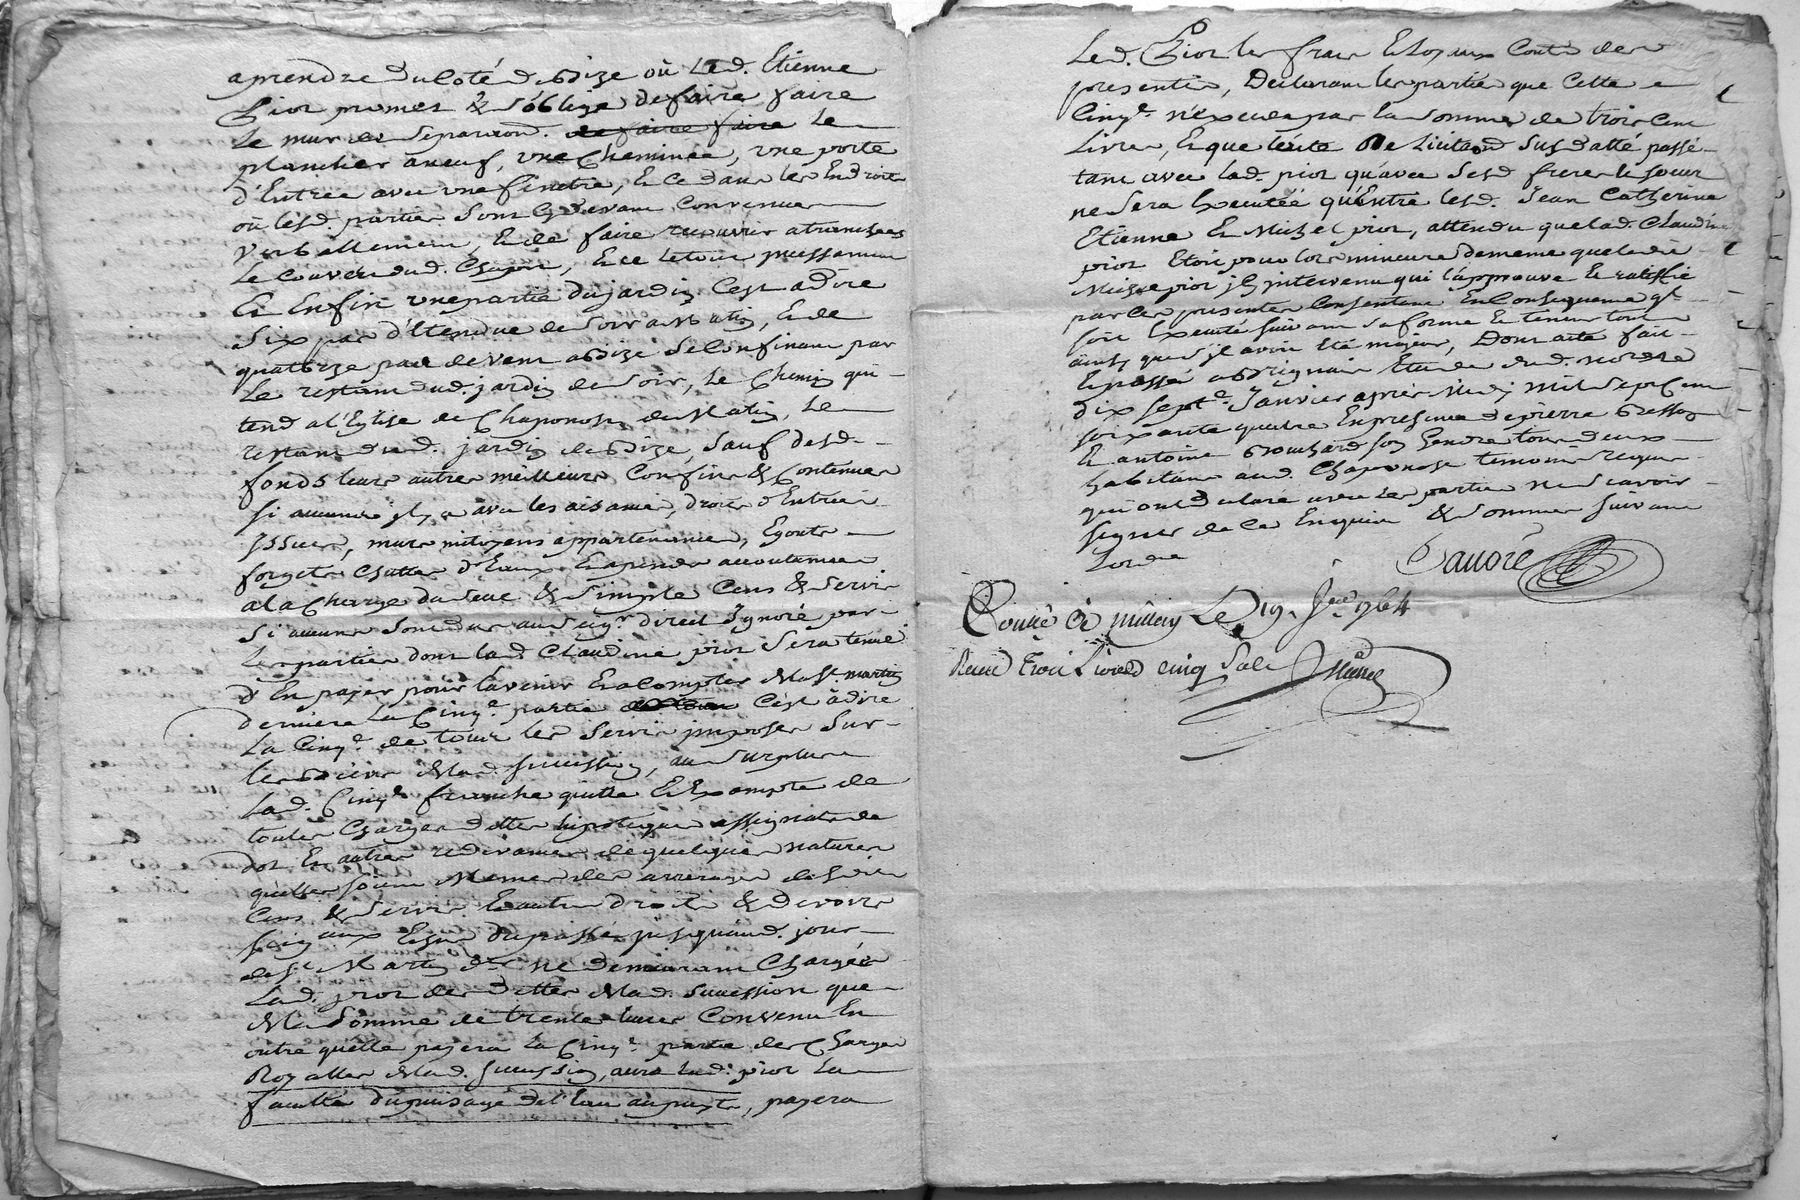 aprendre du Coté de Bize où Led. Etienne
Prior promet & s'oblige de faire faire
Le mur de Separation. de faire faire Le
plancher aneuf, une Cheminée, une porte
d'Entrée avec une fenetre, Et Ce dans les Endroits
où lesd. parties sont Cydevant Convenues
Verballement, Et de faire recouvrir atranchees
Le Couvert dud. Chapon, Et ce
Et Enfin une partie du jardin C'est adire
Six pas d'Etendue de Soir a Matin, Et de
quatorze pas de Vent a Bize se Confinant par
Le restant dud. jardin de Soir, Le Chemin qui
tend a l'Eglise de Chaponost de Matin, Le
restant dud. jardin de Bize, Sauf desd.
fonds leurs autres meilleurs Confins & Contenues
Si aucune il y a avec les aisances, droits d'Entrées
Issues, murs mitoyens appartenances, Egouts
forgets Chuttes d'Eaux Et apendis accoutumes
a la Charge du seul & Simple Cens & Servis
Si aucuns Sont dus au Seigr. direct Ignoré par
Les parties dont lad. Claudine prior Sera tenue
d'En payer pour l'avenir Et a Compter de la St. martin
derniere La Cinqe. partie C'est àdire
La Cinqe. de tous les Servis imposes Sur
les Biens de lad. succession, au Surplus
Lad. Cinqe. franche quitte Et Exempte de
toutes Charges dettes hipoteques assignats de
dot Et autres redevances de quelques natures
qu'elles soient Memes des arrerages desd.
Cens & Servis Et autres Droits & devoirs
Seigneuriaux Echus du passé jusqu'aud. jour
de St. Martin dr. Ne demeurant Chargée
Lad. prior des dettes de lad. Succession que
de la Somme de trente livres Convenu En
outre qu'elle payera la Cinqe. partie des Charges
Royalles de lad. Succession, aura lad. prior La
faculté du puisage de l'Eau au puits, payera
Led. Prior les frais Et loyaux Couts des
presentes, Declarant les parties que Cette
Cinqe. n'Excede pas la Somme de trois Cent
Livres, Et que l'acte De Licitation Susdatté passé
tant avec lad. prior qu'avec Sesd freres Et soeur
ne Sera Executée qu'Entre lesd. Jean Catherine
Etienne Et Michel prior, attendu que lad. Claudine
prior Etoit pour lors mineure de meme que led.
Michel prior icy intervenu qui l'approuve Et ratiffie
par Ces presentes Consentant En Consequence ql.
soit Executé Suivant Sa forme Et teneur tout
ainsy que s'il avoit Eté majeur, Dont acte fait
Et passé a Brignais Etude dud. notaire
dix sept e. Janvier apres Midy Mil Sept Cent
soixante quatre En presence de pierre Besson
Et antoine Brochard son Gendre tous deux
habitans aud. Chaponost temoins requis
qui ont declaré avec les parties ne Scavoir
signer de Ce Enquis & Sommes suivant
Lord.e
Dauoré
Controllé à millery Le 19. Jer. 1764
Recu Trois Livres cinq Sols